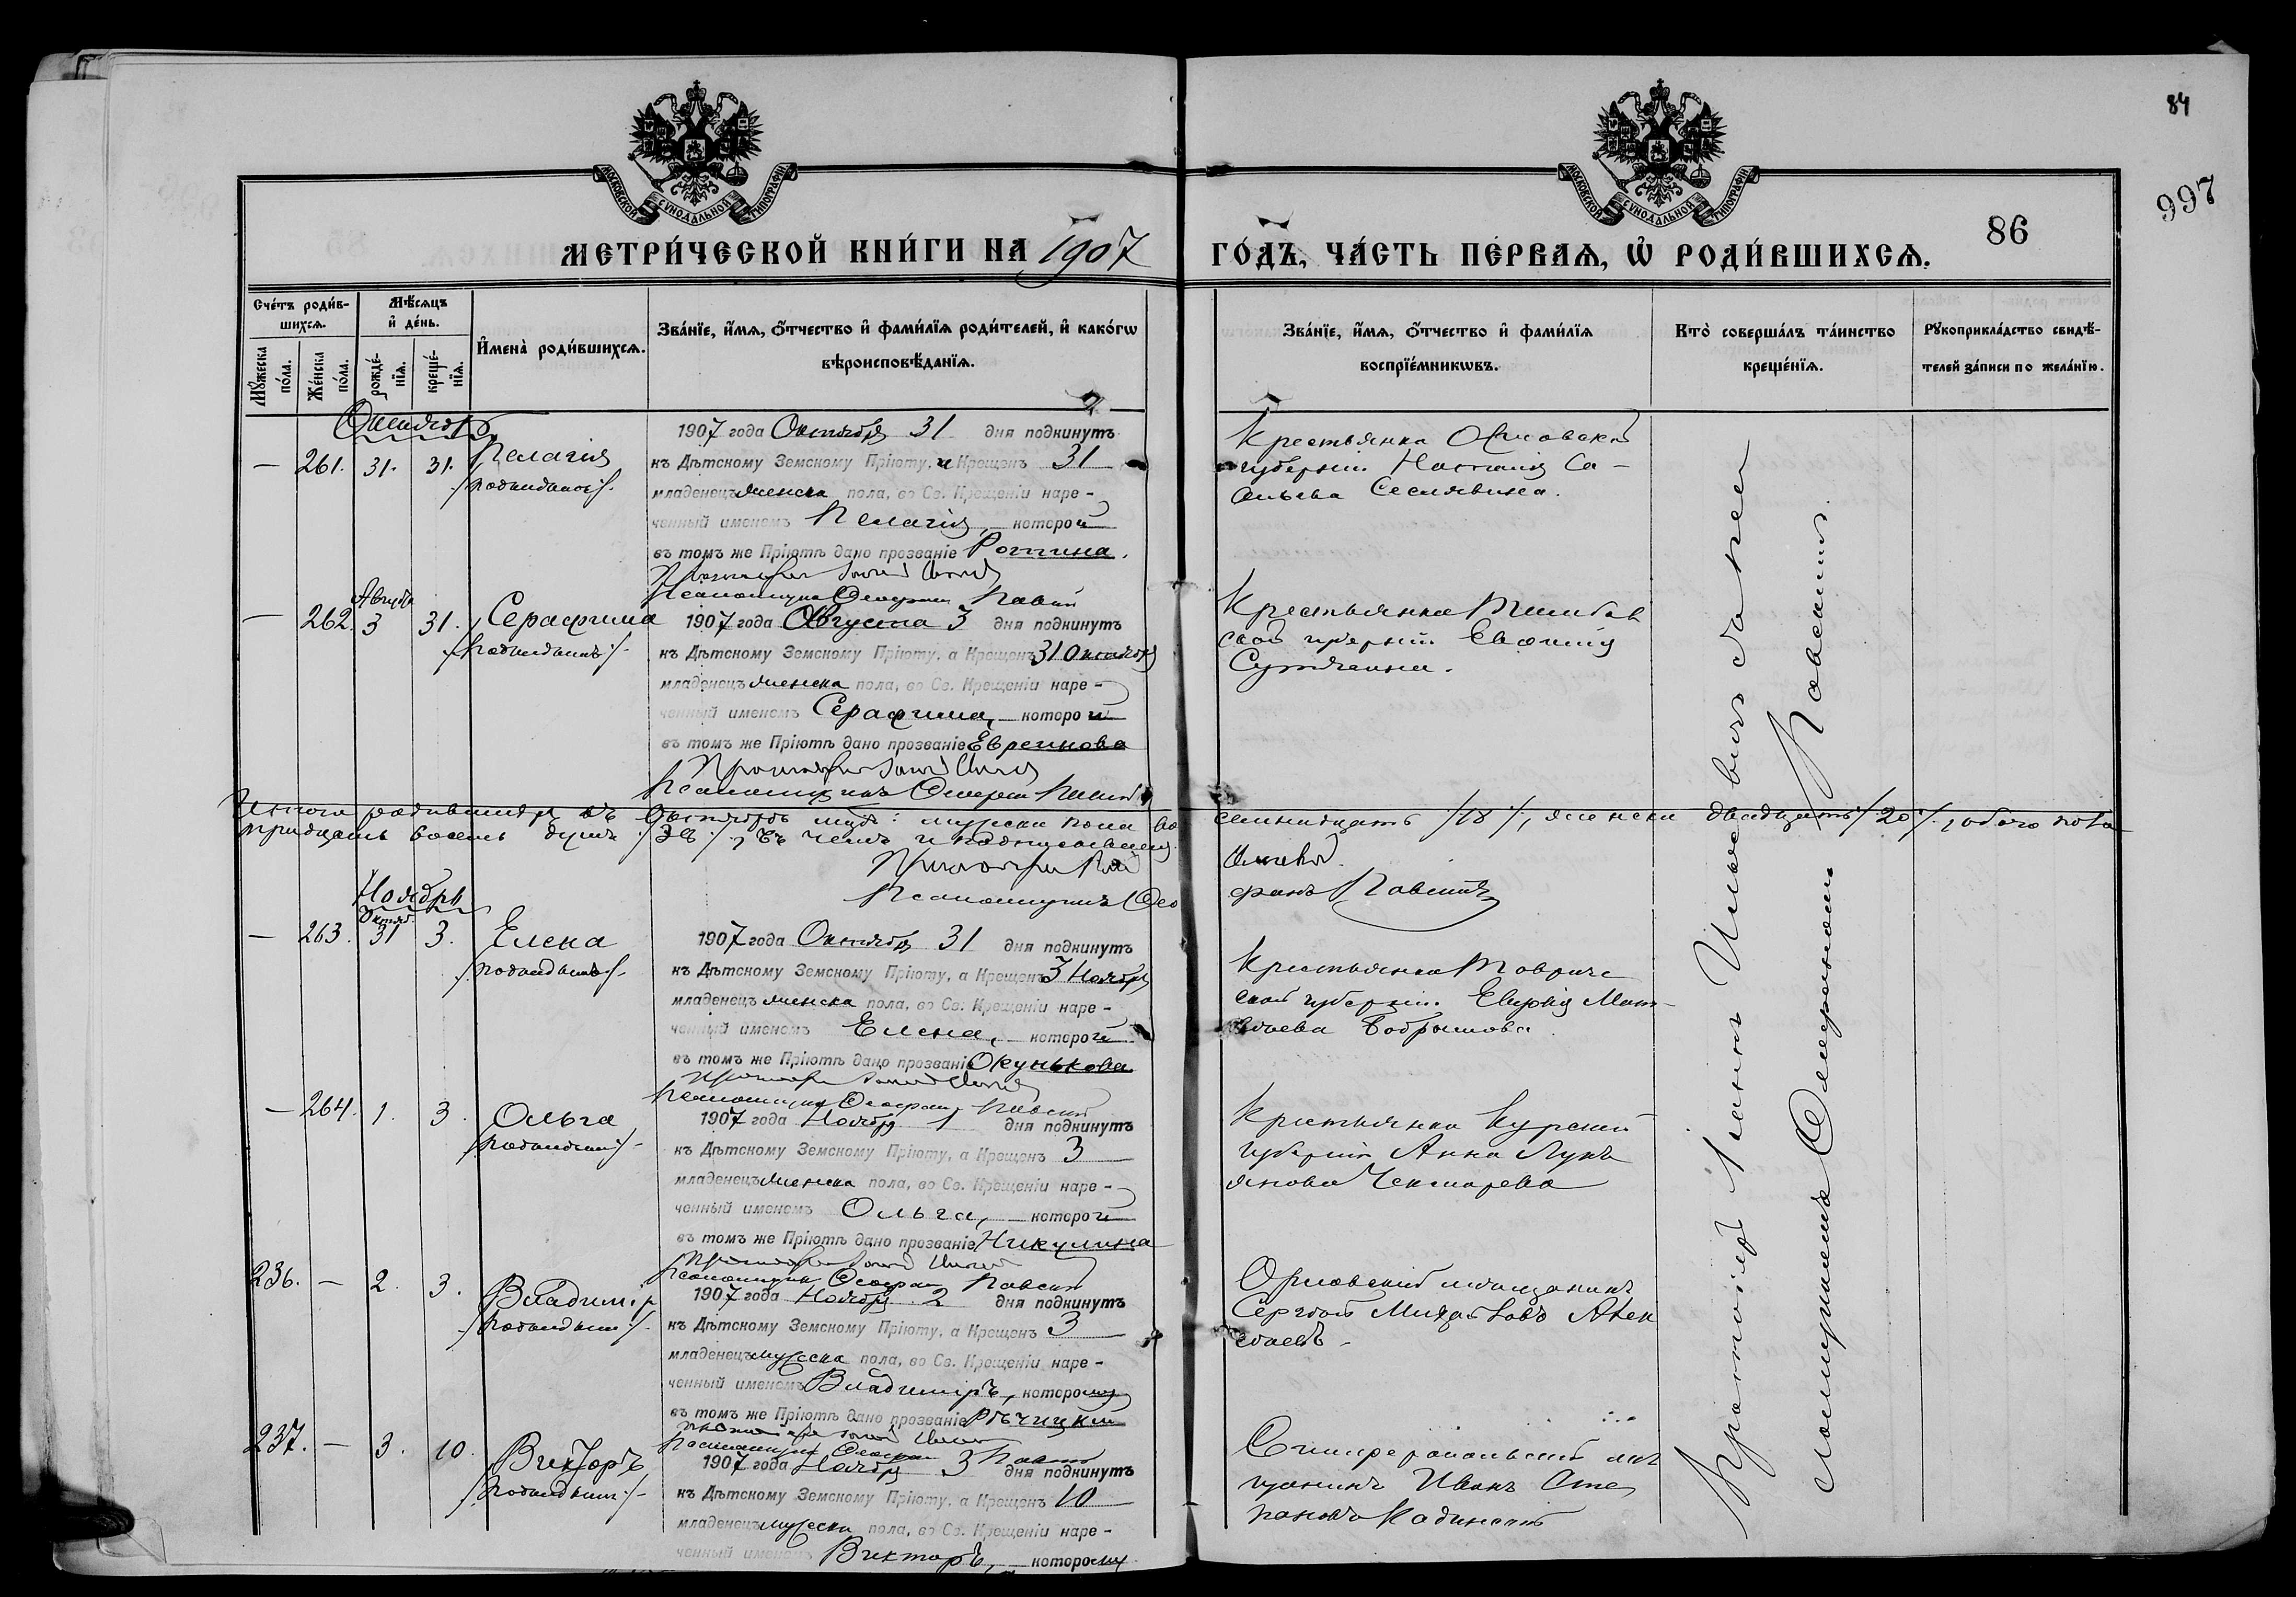 84
997
86
МОСКОВСКОЙ СУНОДАЛЬНОЙ ТИПОГРАФІИ
МОСКОВСКОЙ СУНОДАЛЬНОЙ ТИПОГРАФІИ
МЕТРИ́ЧЕСКОЙ КНИ́ГИ НА 1907 ГО́ДЪ, ЧА́СТЬ ПЕ́РВАЯ, Ѡ҆ РОДИ́ВШИХСЯ.
Сче́тъ роди́в-
шихся.
Мꙋ́жеска по́ла.
Же́нска по́ла.
Мѣ́сяцъ
и҆ де́нь.
рожде́-
нїя.
креще́-
нїя.
И҆мена̀ роди́вшихся.
Зва́нїе, и҆́мя, ѻ҆́тчество и҆ фами́лїя роди́телей, и҆ како́гѡ
вѣроисповѣ́данїя.
Зва́нїе, и҆́мя, ѻ҆́тчество и҆ фами́лїя
воспрїе́мникѡвъ.
Кто̀ соверша́лъ та́инство
креще́нїя.
Рꙋкоприкла́дство свидѣ́-
телей за́писи по жела́нїю.
Октябрь
— 261. 31. 31. Пелагія
/подкидышъ/.
1907 года Октября 31 дня подкинутъ
къ Дѣтскому Земскому Пріюту, и Крещенъ 31
младенецъ женска пола, во Св. Крещеніи наре-
ченный именемъ Пелагія, которой
въ томъ же Пріютѣ дано прозваніе
Протоіерей Іоаннъ
Псаломщикъ Павскій
Крестьянка Орловской
губерніи
Августа
— 262. 3 31. Серафима
/подкидышъ/.
1907 года Августа 3 дня подкинутъ
къ Дѣтскому Земскому Пріюту, а Крещенъ 31 Октября
младенецъ женска пола, во Св. Крещеніи наре-
ченный именемъ Серафима, которой
въ томъ же Пріютѣ дано прозваніе Евреинова
Протоіерей Іоаннъ
Псаломщикъ
Крестьянка Тамбов
ской губерніи Евфимія
Итого родившихся въ Октябрѣ мцѣ: мужска пола во семнадцать /18/, женска двадцать /20/, обоего пола
тридцать восемь душъ /38/, въ чемъ и подписываемся.
Протоіерей
Псаломщикъ Ѳео фанъ Павскій
Ноябрь
Октяб.
— 263. 31 3. Елена
/подкидышъ/.
1907 года Октября 31 дня подкинутъ
къ Дѣтскому Земскому Пріюту, а Крещенъ 3 Ноября
младенецъ женска пола, во Св. Крещеніи наре-
ченный именемъ Елена, которой
въ томъ же Пріютѣ дано прозваніе Окунькова
Протоіерей Іоаннъ
Псаломщикъ Ѳеофанъ Павскій
Крестьянка Тавриче
ской губерніи Мат-
вѣева
— 264. 1. 3. Ольга
/подкидышъ/.
1907 года Ноября 1 дня подкинутъ
къ Дѣтскому Земскому Пріюту, а Крещенъ 3
младенецъ женска пола, во Св. Крещеніи наре-
ченный именемъ Ольга, которой
въ томъ же Пріютѣ дано прозваніе Никулина
Протоіерей Іоаннъ
Псаломщикъ Ѳеофанъ Павскій
Крестьянка Курской
губерніи Анна Лукь
янова Чекмарева
236. — 2. 3. Владиміръ
/подкидышъ/.
1907 года Ноября 2 дня подкинутъ
къ Дѣтскому Земскому Пріюту, а Крещенъ 3
младенецъ мужска пола, во Св. Крещеніи наре-
ченный именемъ Владиміръ, которому
въ томъ же Пріютѣ дано прозваніе Рѣчицкій
Псаломщикъ Ѳеофанъ
Орловскій мѣщанинъ
Сергѣй Михайловъ Алек
сѣевъ
237. — 3. 10. Викторъ
/подкидышъ/.
1907 года Ноября 3 дня подкинутъ
къ Дѣтскому Земскому Пріюту, а Крещенъ 10
младенецъ мужска пола, во Св. Крещеніи наре-
ченный именемъ Викторъ, которому
Симферопольскій мѣ
щанинъ Иванъ Сте
пановъ
Протоіерей Іоаннъ
Псаломщикомъ Павскимъ.